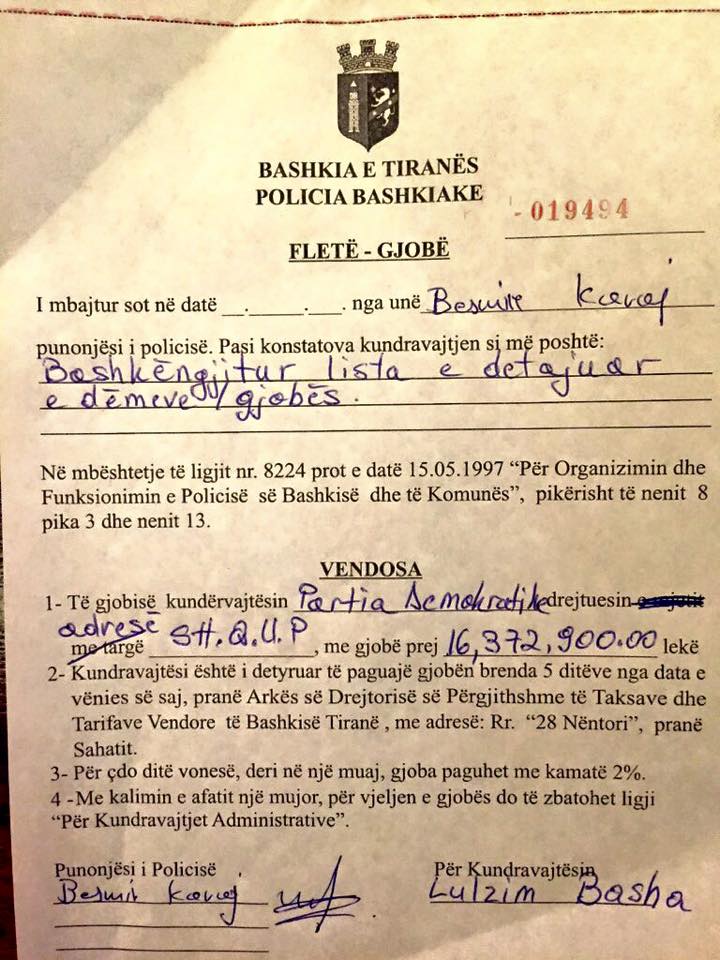 BASHKIA E TIRANËS
POLICIA BASHKIAKE
- 019494
FLETË - GJOBË
I mbajtur sot në datë __.____.__. nga unë Besmir Kavaj
punonjësi i policisë. Pasi konstatova kundravajtjen si më poshtë:
Bashkëngjitur lista e detajuar
e dëmeve/gjobës.
Në mbështetje të ligjit nr. 8224 prot e datë 15.05.1997 “Për Organizimin dhe
Funksionimin e Policisë së Bashkisë dhe të Komunës”, pikërisht të nenit 8
pika 3 dhe nenit 13.
VENDOSA
1- Të gjobisë kundërvajtësin Partia Demokratike drejtuesin
adrese SH.Q.U.P
me targë , me gjobë prej 16,372,900.00 lekë
2- Kundravajtësi është i detyruar të paguajë gjobën brenda 5 ditëve nga data e
vënies së saj, pranë Arkës së Drejtorisë së Përgjithshme të Taksave dhe
Tarifave Vendore të Bashkisë Tiranë , me adresë: Rr. “28 Nëntori”, pranë
Sahatit.
3- Për çdo ditë vonesë, deri në një muaj, gjoba paguhet me kamatë 2%.
4 -Me kalimin e afatit një mujor, për vjeljen e gjobës do të zbatohet ligji
“Për Kundravajtjet Administrative”.
Punonjësi i Policisë Për Kundravajtësin
Besmir Kavaj Lulzim Basha